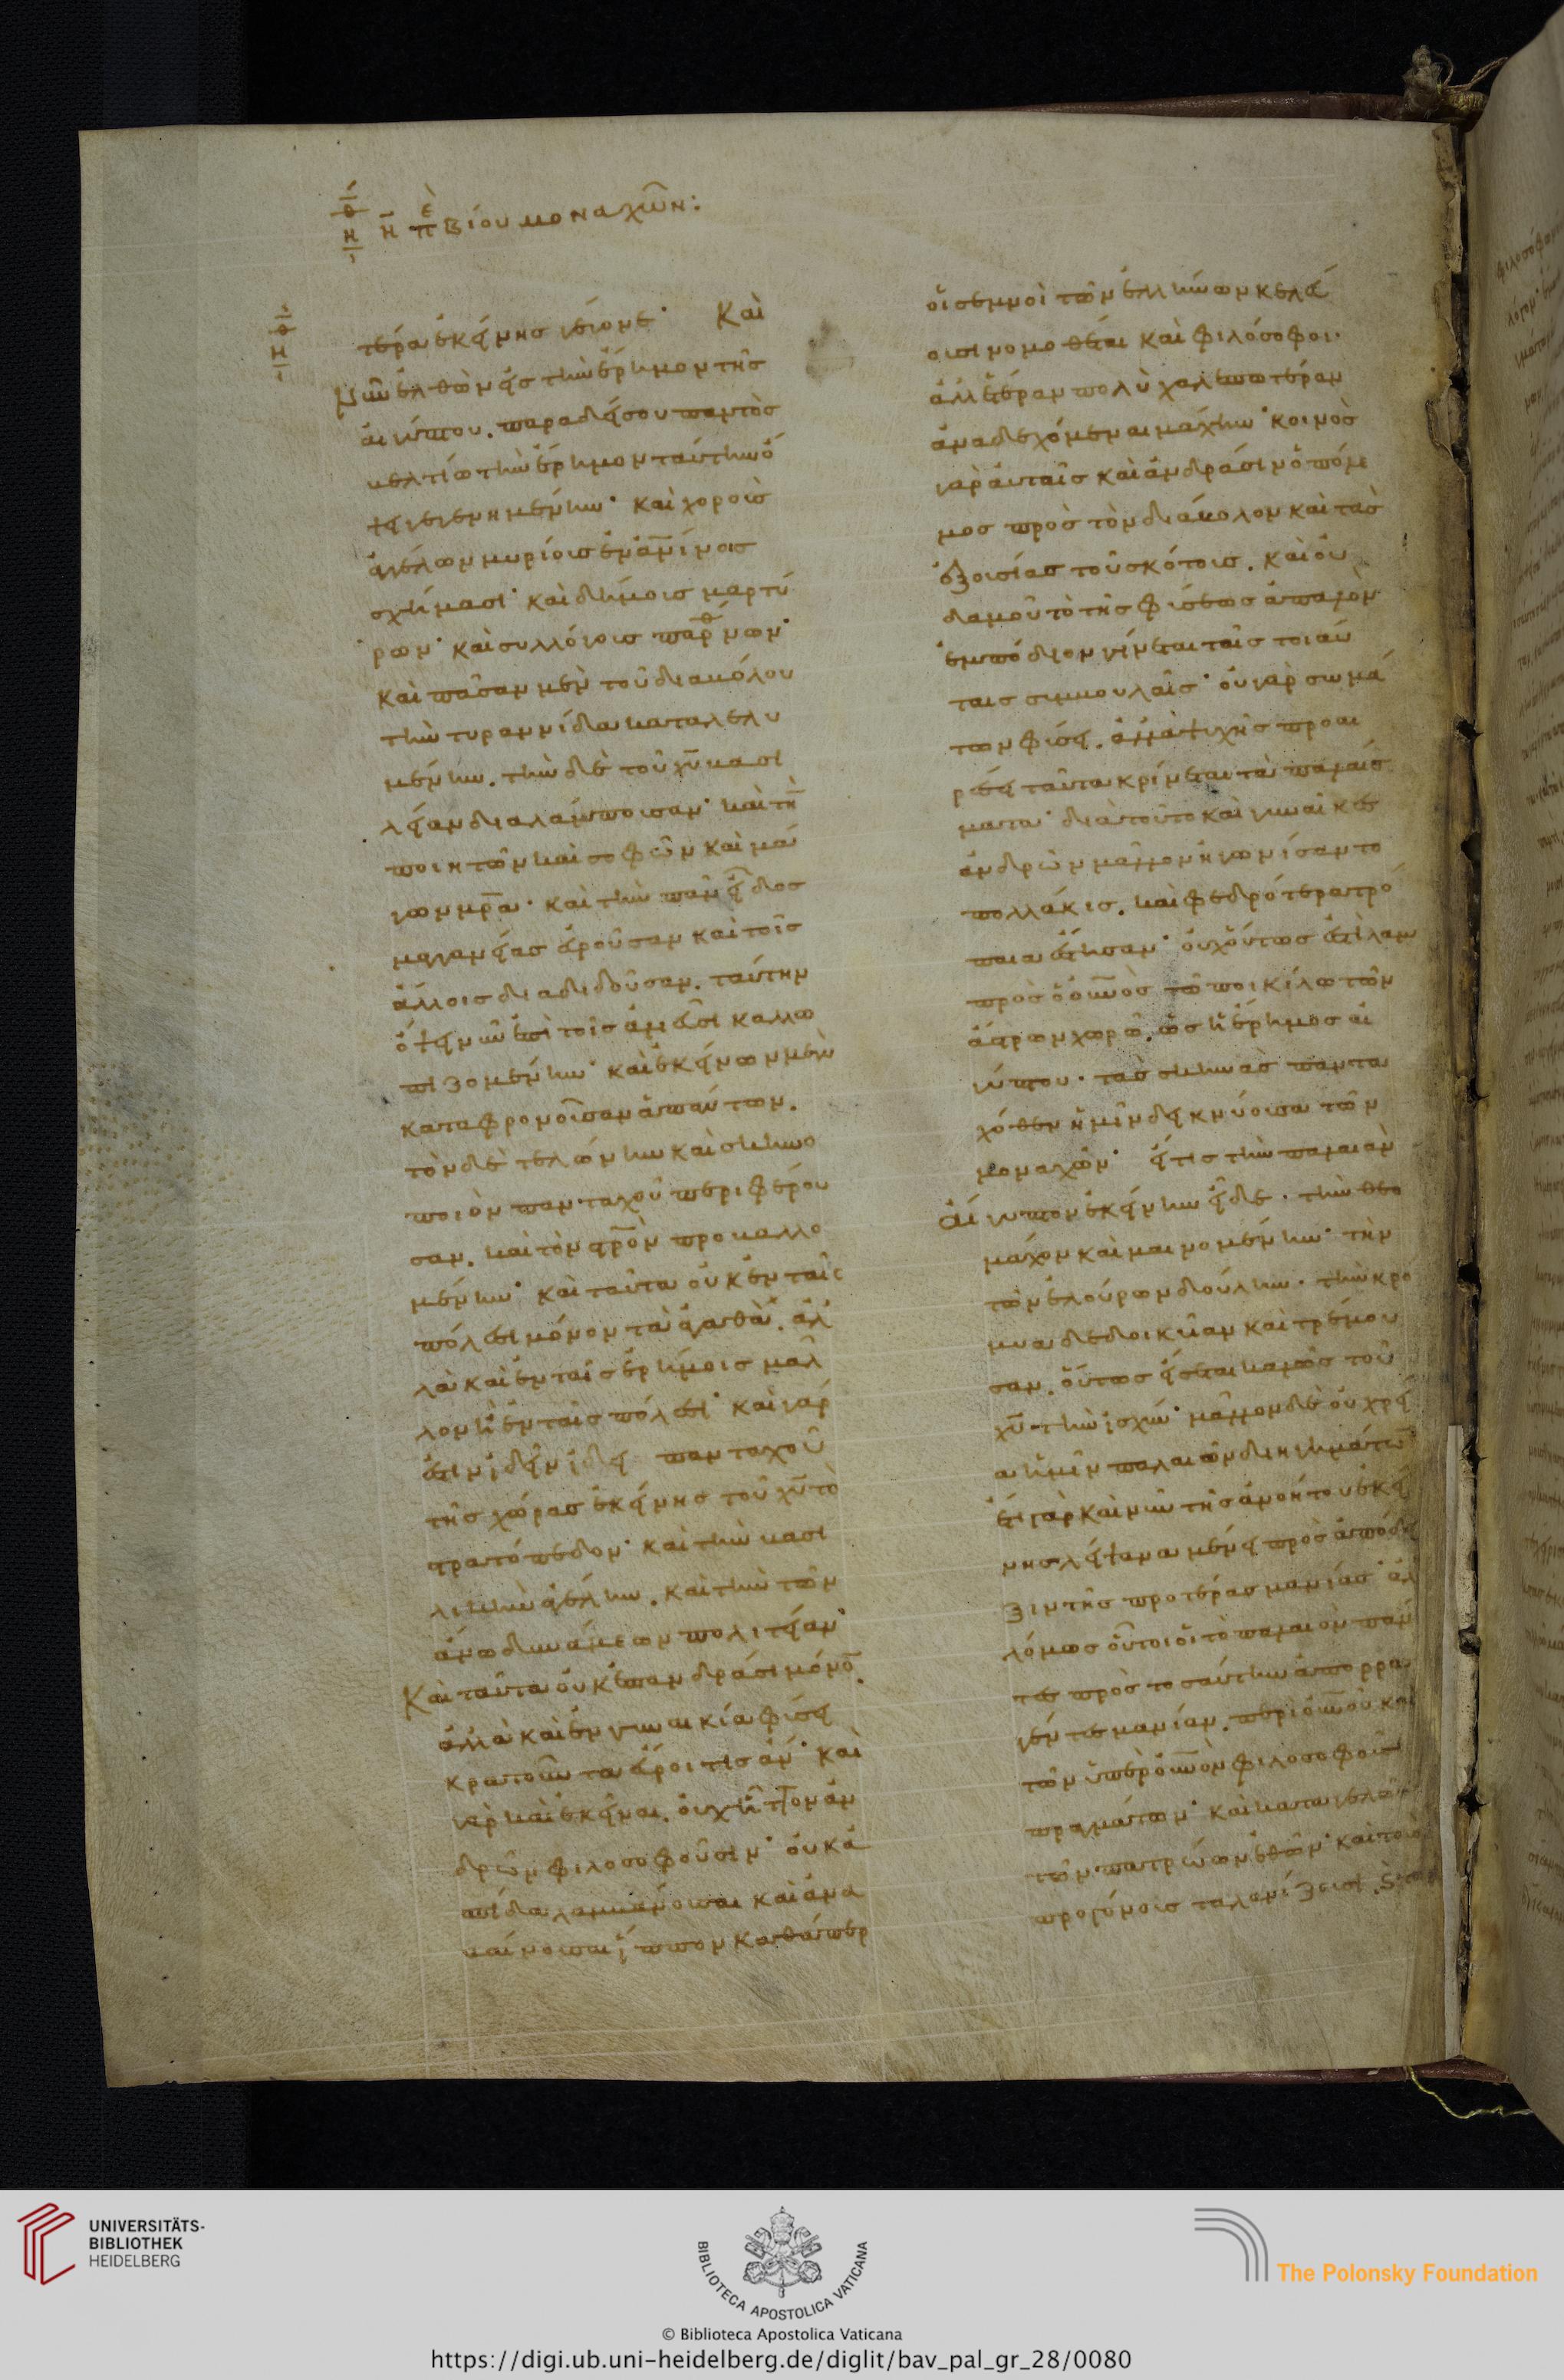 ὁμ η πε βίου μοναχῶν:
τέρα ἐκείνης γέγονε· Καὶ
νῦν ἐλθὼν εἰς τὴν ἔρημον τῆς
αἰγύπτου, παραδείσου παντὸς
βελτίω τὴν ἔρημον ταύτην ὄ
ψει γεγενημένην· καὶ χοροὺς
ἀγγέλων μυρίους ἐν ἀνίνοις
σχήμασι· καὶ δήμους μαρτύ
ρων· καὶ συλλόγους παρθνων·
καὶ πᾶσαν μὲν τοῦ διαβόλου
τὴν τυραννίδα καταλελυ
μένην, τὴν δὲ τοῦ χυ βασι
λείαν διαλάμπουσαν· καὶ τὴν
ποιητῶν καὶ σοφῶν καὶ μά
γων μρα· καὶ τὴν πᾶν εἶδος
μαγανείας εὑροῦσαν καὶ τοῖς
ἄλλοις διαδιδοῦσαν, ταύτην
ὄψει νῦν ἐπὶ τοῖς ἁλιεῦσι καλλω
πιζομένην· καὶ ἐκείνων μὲν
καταφρονοῦσαν ἁπάντων.
τὸν δὲ τελώνην καὶ σκηνο
ποιὸν πανταχοῦ περιφέρου
σαν, καὶ τὸν στρον προβαλλο
μένην· καὶ ταῦτα οὐκ ἐν ταῖς
πόλεσι μόνον τὰ ἀγαθὰ, ἀλ
λὰ καὶ ἐν ταῖς ἐρήμοις μᾶλ
λον ἢ ἐν ταῖς πόλεσι· καὶ γάρ
ἐστιν ἰδεῖν πανταχοῦ
τῆς χώρας ἐκείνης τοῦ χυ τὸ
στρατόπεδον· καὶ τὴν βασι
λικὴν ἀγέλην, καὶ τὴν τῶν
ἄνω δυνάμεων πολιτείαν·
Καὶ ταῦτα οὐκ ἐπ ἀνδράσι μόνον,
ἀλλὰ καὶ ἐν γυναικία φύσει
κρατοῦντα εὕροι τις ἄν· καὶ
γὰρ καὶ ἐκεῖναι, οὐχ ἧττον ἀν
δρῶν φιλοσοφοῦσιν· οὐκ ἀ
σπίδα λαμβάνουσαι καὶ ἀνα
βαίνουσαι ἵππον καθάπερ
οἱ σεμνοὶ τῶν ἑλλήνων κελεύ
ουσι νομοθέται καὶ φιλόσοφοι.
ἀλλ ἑτέραν πολὺ χαλεπωτέραν
ἀναδεχόμεναι μάχην· κοινὸς
γὰρ αὐταῖς καὶ ἀνδράσιν ὁ πόλε
μος πρὸς τὸν διάβολον καὶ τὰς
ἐξουσίας τοῦ σκότους. καὶ οὐ
δαμοῦ τὸ τῆς φύσεως ἁπαλὸν
ἐμπόδιον γίνεται ταῖς τοιαύ
ταις συμβουλαῖς· οὐ γὰρ σωμά
των φύσει, ἀλλὰ ψυχῆς προαι
ρέσει ταῦτα κρίνεται τὰ παλαίσ
ματα· διὰ τοῦτο καὶ γυναῖκες
ἀνδρῶν μᾶλλον ἠγωνίσαντο
πολλάκις, καὶ φεδρότερα τρό
παια ἔστησαν· οὐχ οὕτως ἐστὶ λαμ
πρὸς ὁ οὐνὸς τῶ ποικίλω τῶν
ἀστρων χορῶ, ὡς ἡ ἔρημος αἰ
γύπτου· τὰς σκηνὰς παντα
χόθεν ἡμῖν δεικνύουσα τῶν
μοναχῶν· εἴ τις τὴν παλαιὰν
αἴγυπτον ἐκείνην εἶδε, τὴν θεο
μάχον καὶ μαινομένην· τὴν
τῶν ἐλούρων δούλην, τὴν κρό
μυα δεδοικυῖαν καὶ τρέμου
σαν, οὕτως εἴσεται καλῶς τοῦ
χυ τὴν ἰσχύν· μᾶλλον δὲ οὐ χρεί
α ἡμῖν παλαιῶν διηγημάτων
ἔτι γὰρ καὶ νῦν τῆς ἀνοήτου ἐκεί
νης λείψανα μένει πρὸς ἀπόδει
ξιν τῆς προτέρας μανίας· ἀλ
λ ὅμως οὗτοι οἱ τὸ παλαιὸν πάν
τες πρὸς τοσαύτην ἀπορρα
γέντες μανίαν, περὶ οὐνοῦ καὶ
τῶν ὑπὲρ οὐνὸν φιλοσοφοῦσι
πραγμάτων· καὶ καταγελῶσι
τῶν πατρώων ἐθῶν· καὶ τοὺς
προγόνους ταλανίζουσι,